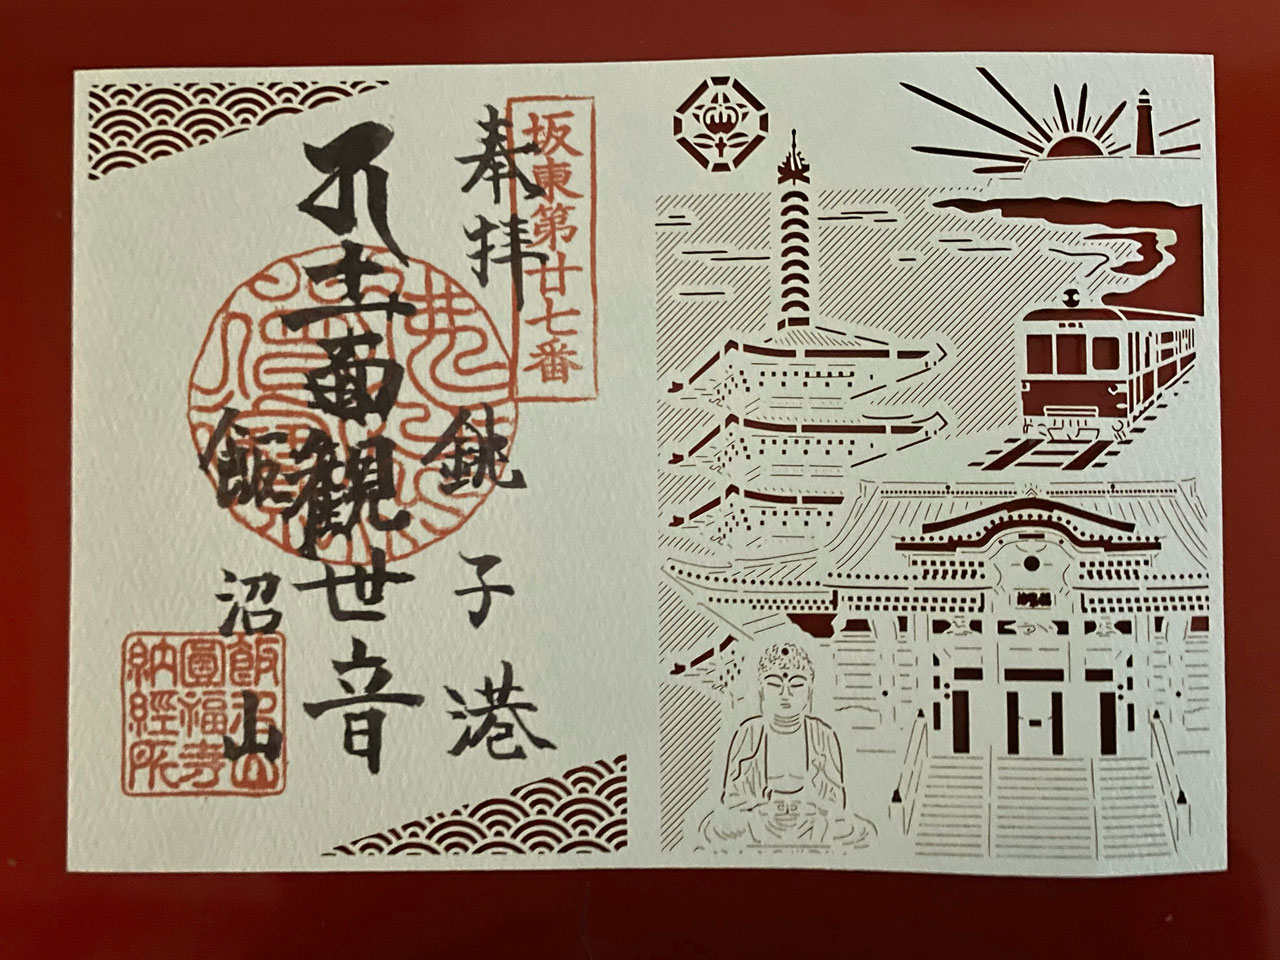 坂東第廿七番
奉拝
銚子港
十一面観世音
飯沼山
飯沼山
圓福寺
納經所
801